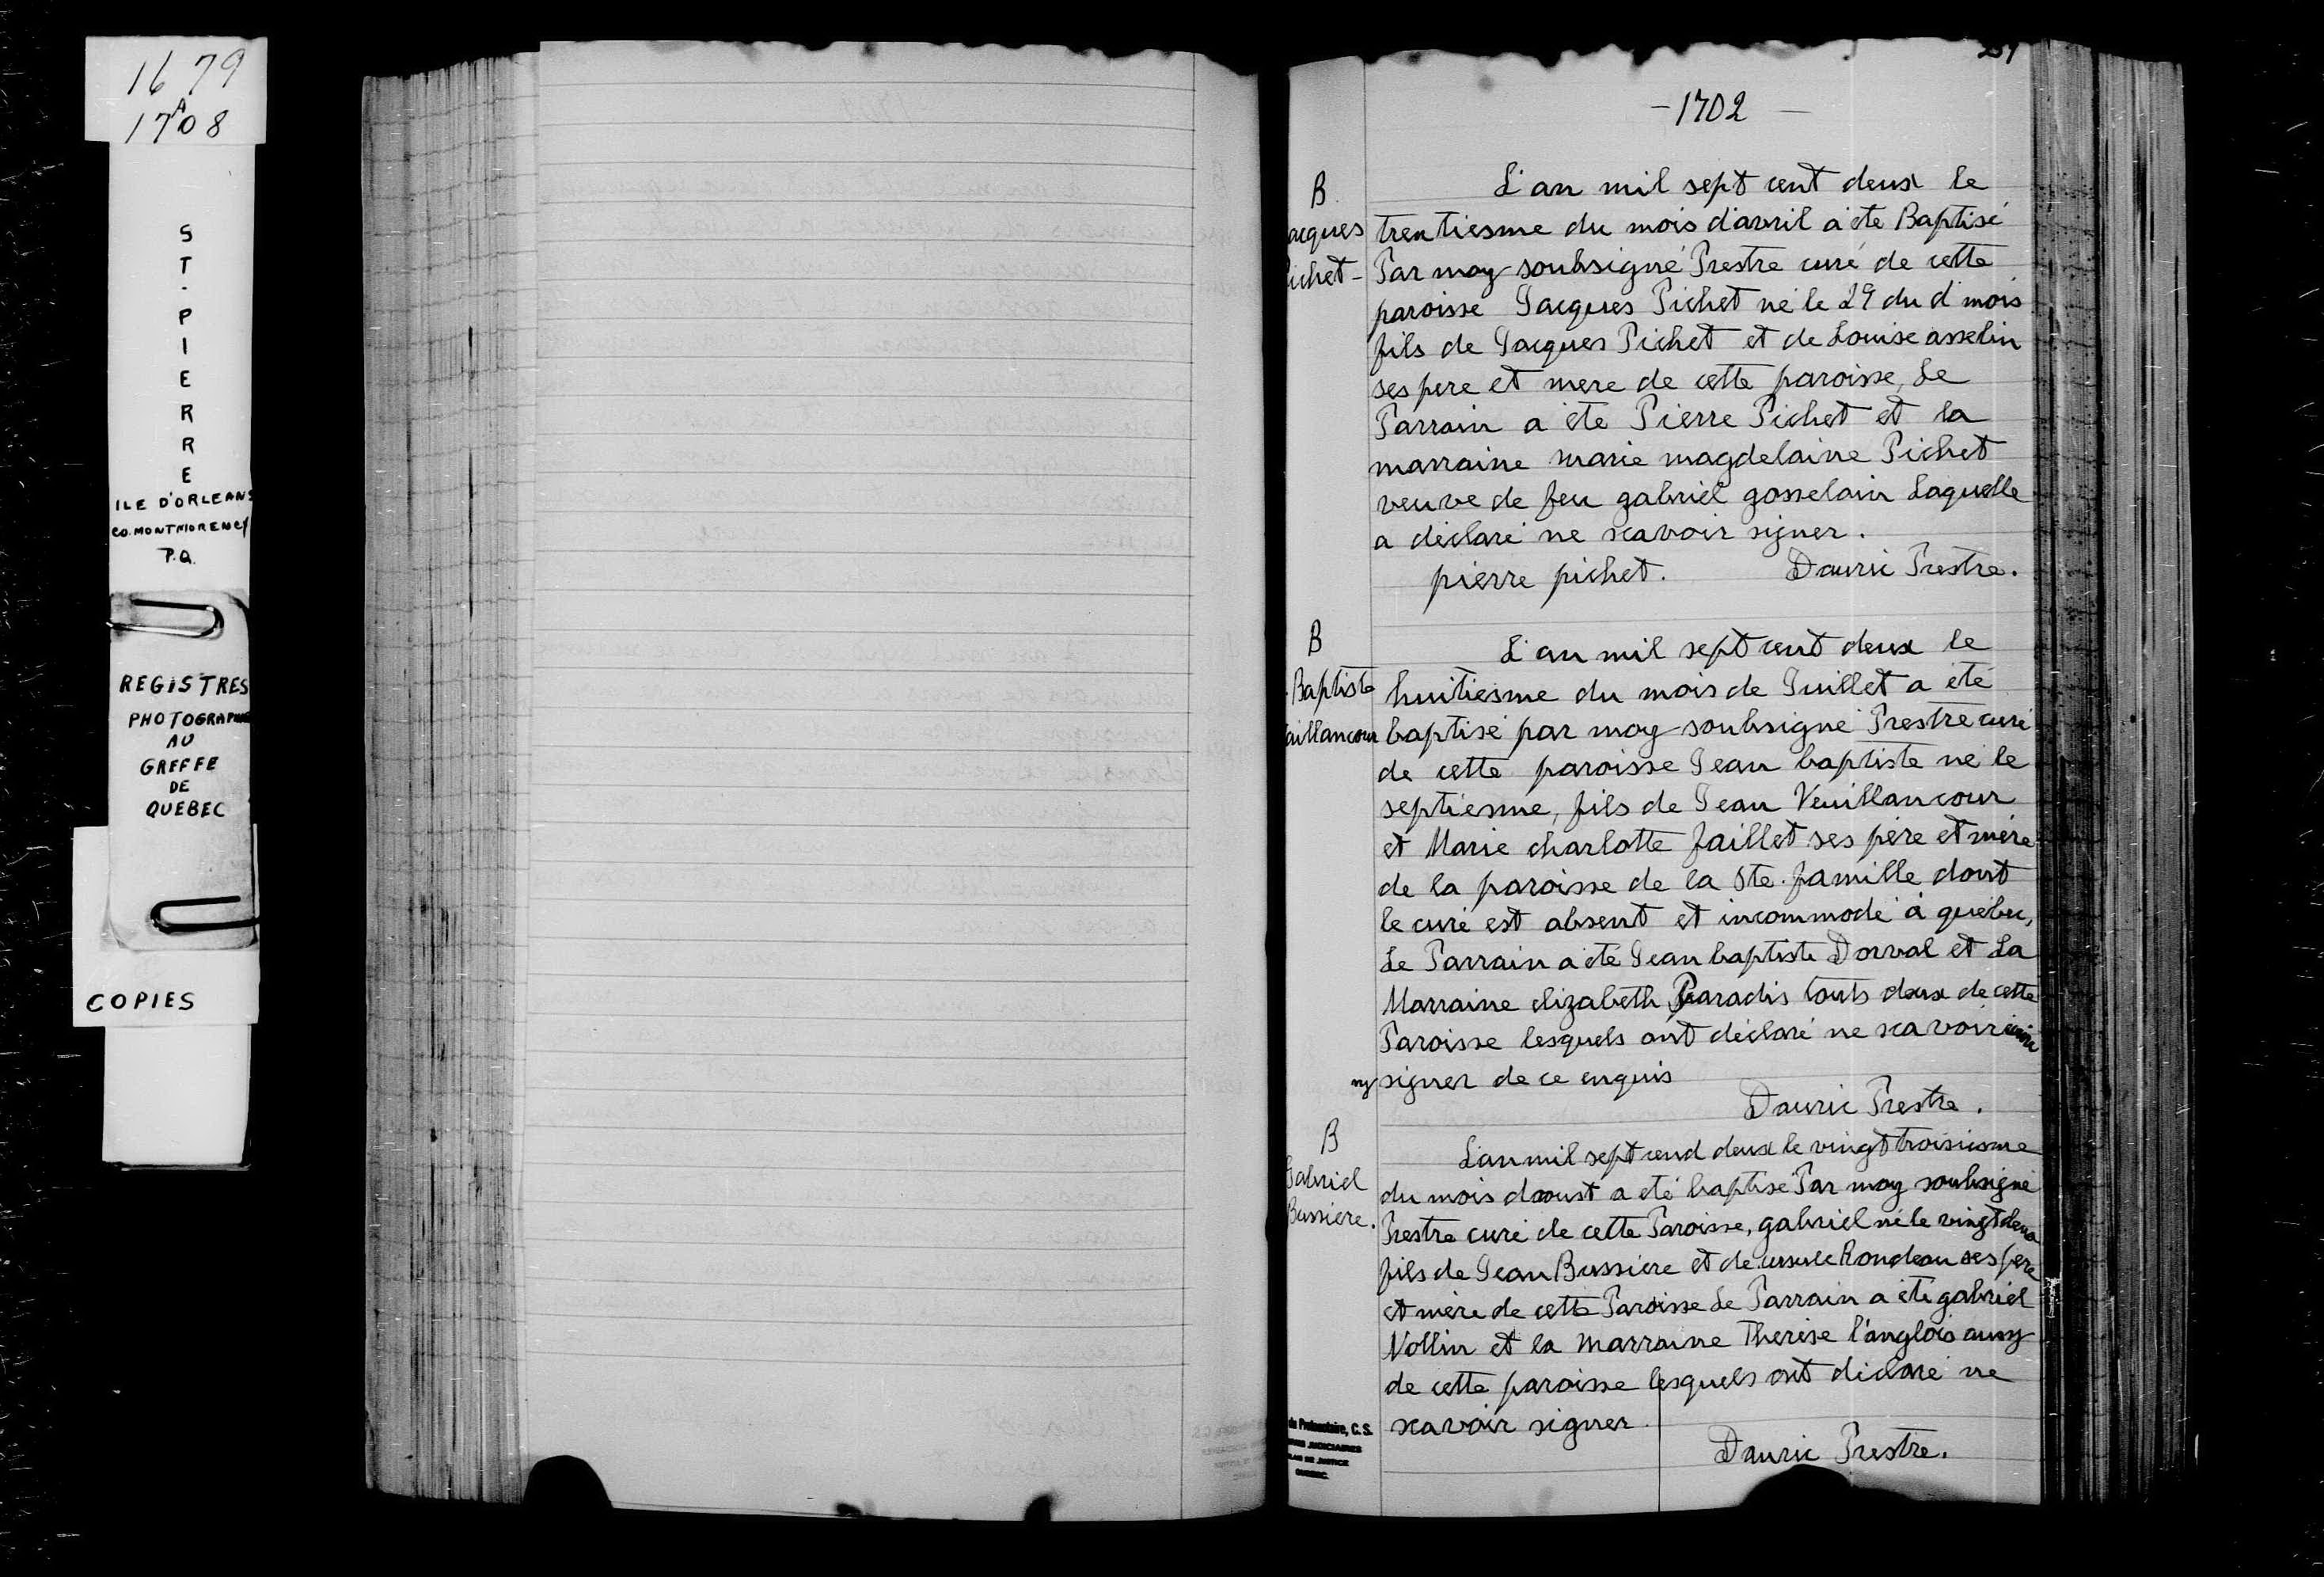 1679
A
1708
ST. PIERRE
ILE D'ORLEANS
CO. MONTMORENCY
P.Q.
REGISTRES
PHOTOGRAPHIÉ
AU
GREFFE
DE
QUEBEC
COPIES
- 1702 -
B
acques
ichet -
L'an mil sept cent deux le
trentiesme du mois d'avril a été Baptisé
Par moy soubsigné Prestre curé de cette
paroisse Jacques Pichet né le 29 du d mois
fils de Jacques Pichet et de Louise asselin
ses pere et mere de cette paroisse, Le
Parrain a été Pierre Pichet et la
marraine marie magdelaine Pichet
veuve de feu gabriel gosselain Laquelle
a déclaré ne scavoir signer.
pierre pichet. Dauric Prestre.
B
Baptiste
aillancour
L'an mil sept cent deux le
huitiesme du mois de Juillet a été
baptisé par moy soubsigné Prestre curé
de cette paroisse Jean baptiste né le
septiesme, fils de Jean Veuillancour
et Marie charlotte faillet ses père et mère
de la paroisse de la Ste. famille dont
le curé est absent et incommodé à quebec,
Le Parrain a été Jean baptiste Dorval et La
Marraine elizabeth Paradis touts deux de cette
Paroisse lesquels ont déclaré ne scavoir
ny signer de ce enquis
Dauric Prestre.
B
Gabriel
Bussiere.
L'an mil sept cend deux le vingt troisiesme
du mois daoust a été baptisé Par moy soubsigné
Prestre curé de cette Paroisse, gabriel né le vingt deux
fils de Jean Bussiere et de ursule Rondeau ses pere
et mère de cette Paroisse Le Parrain a été gabriel
Nollin et la Marraine Therese l'anglois aussy
de cette paroisse lesquels ont déclaré ne
scavoir signer.
Dauric Prestre.
du Protonotaire, C. S.
JUDICIAIRES
DE JUSTICE
QUEBEC.